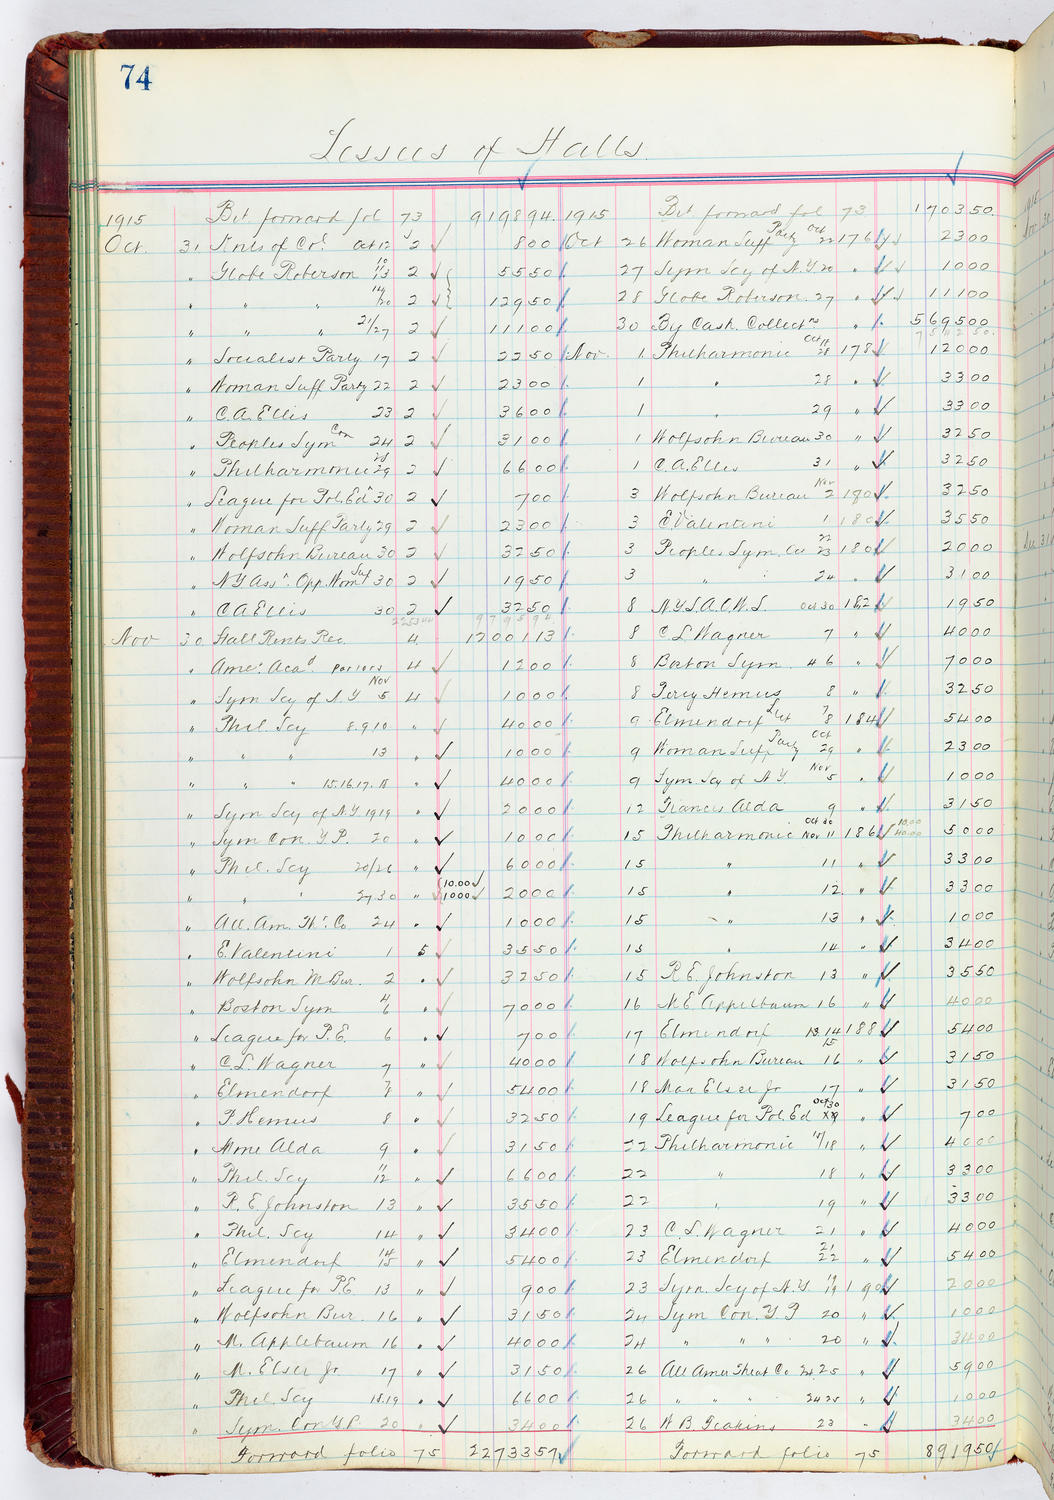 74
Lessees of Halls
1915 Bot forward fol 73 919894.
Oct. 31 Knts of Col Oct 12 2 800
" Globe Roberson 10/13 2 5550
" " " 14/20 2 12950
" " " 21/27 2 11100
" Socialist Party 17 2 2250
" Woman Suff Party 22 2 2300
" C. A. Ellis 23 2 3600
" Peoples Sym Con 24 2 3100
" Philharmonic 28/29 2 6600
" League for Pol. Edn 30 2 700
" Woman Suff Party 29 2 2300
" Wolfsohn Bureau 30 2 3250
" N Y Assn. Opp. Wom Suf 30 2 1950
" C A Ellis 30 2 3250
979594
Nov 30 Hall Rents Rec 4 1200113
" Ame. Acad Parlors 4 1200
" Sym Scy of N Y Nov 5 4 1000
" Phil Scy 8.9.10 " 4000
" " " 13 " 1000
" " " 15.16.17.18 " 4000
" Sym Scy of N.Y. 19 19 " 2000
" Sym Con. Y. P. 20 " 1000
" Phil. Scy 20/26 " 6000
" " " 27.30 " 10.00 1000 2000
" All. Am. Thr. Co 24 " 1000
" E. Valentini 1 5 3550
" Wolfsohn M. Bur. 2 " 3250
" Boston Sym 4/6 " 7000
" League for P. E. 6 " 700
" C. L. Wagner 7 " 4000
" Elmendorf 7/8 " 5400
" P Hemus 8 " 3250
" Mme Alda 9 " 3150
" Phil. Scy 11/12 " 6600
" R. E. Johnston 13 " 3550
" Phil. Scy 14 " 3400
" Elmendorf 14/15 " 5400
" League for P.E. 13 " 900
" Wolfsohn Bur. 16 " 3150
" M. Applebaum 16 " 4000
" M. Elser Jr. 17 " 3150
" Phil. Scy 18.19 " 6600
" Sym. Con. Y.P. 20 " 3400
Forward folio 75 2273357
1915 Bot forward fol 73 170350.
Oct 26 Woman Suff Party Oct 22 176 2300
27 Sym Scy of N.Y. 20 " 1000
28 Globe Roberson. 27 " 11100
30 By Cash. Collectns " 569500
754250.
Nov. 1 Philharmonic Oct 11/28 178 12000
1 " 28 " 3300
1 " 29 " 3300
1 Wolfsohn Bureau 30 " 3250
1 C. A. Ellis 31 " 3250
3 Wolfsohn Bureau Nov 2 180 3250
3 E. Valentini 1 180 3550
3 Peoples Sym. Co 22/23 180 2000
3 " " 24 " 3100
8 N.Y.S.A.O.W.S. Oct 30 182 1950
8 C L Wagner 7 " 4000
8 Boston Sym. 4 6 " 7000
8 Percy Hemus 8 " 3250
9 Elmendorf Lect 7/8 184 5400
9 Woman Suff Party Oct 29 " 2300
9 Sym. Scy of N.Y. Nov 5 " 1000
12 Francis Alda 9 " 3150
15 Philharmonic Oct 30 Nov 11 186 10.00 40.00 5000
15 " 11 " 3300
15 " 12 " 3300
15 " 13 " 1000
15 " 14 " 3400
15 R. E. Johnston 13 " 3550
16 M E Appelbaum 16 " 4000
17 Elmendorf 13.14 15 188 5400
18 Wolfsohn Bureau 16 " 3150
18 Max Elser Jr 17 " 3150
19 League for Pol. Ed Oct 30 " 700
22 Philharmonic 15/18 " 4000
22 " 18 " 3300
22 " 19 " 3300
23 C. L. Wagner 21 " 4000
23 Elmendorf 21/22 " 5400
23 Sym. Scy of N.Y. 19 190 2000
24 Sym Con. Y P 20 " 1000
24 " " " 20 " 3400
26 All Amer Theat Co 24.25 " 5900
26 " " " 24 25 " 1000
26 W. B. Feakins 23 " 3400
Forward folio 75 891950